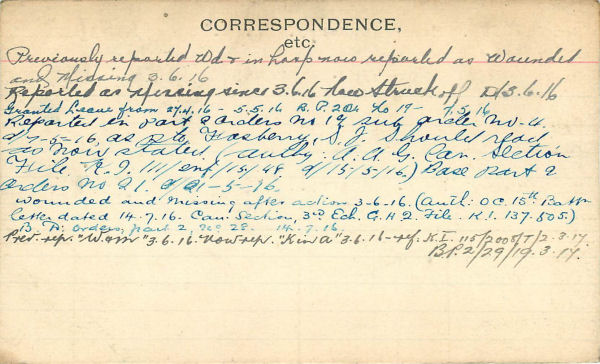 CORRESPONDENCE,
etc.
Previously reported Wd & in hosp now reported as Wounded
and Missing 3.6.16
Reported as Missing since 3.6.16 Now Struck off 3.6.16
Granted Leave from 27.4.16 - 5.5.16 B.P.2 Or No 19 - 7.5.16
Reported in Part 2 orders No 19 sub order No 4.
7-5-16, as Pte Fosberry, S. J. Should read
as now stated (auth; A.A.G. Can. Section
File R.I. 111/ enf/15/48, d/15/5/16.) Base part 2
orders No 21. d/21-5-16.
Wounded and missing after action 3-6-16. (Auth: O.C. 15th Battn
letter dated 14.7.16. Can. Section, 3rd Ech. G.H.Q. File. K.1. 137.505.)
B. P. orders, part 2, No 28. 14.7.16.
Prev. rep. "W&M" 3.6.16. Now rep. "K in A" 3.6.16 - ref: K.I. 115/2005/T/2.3.17.
B.P.2/29/19.3.17.